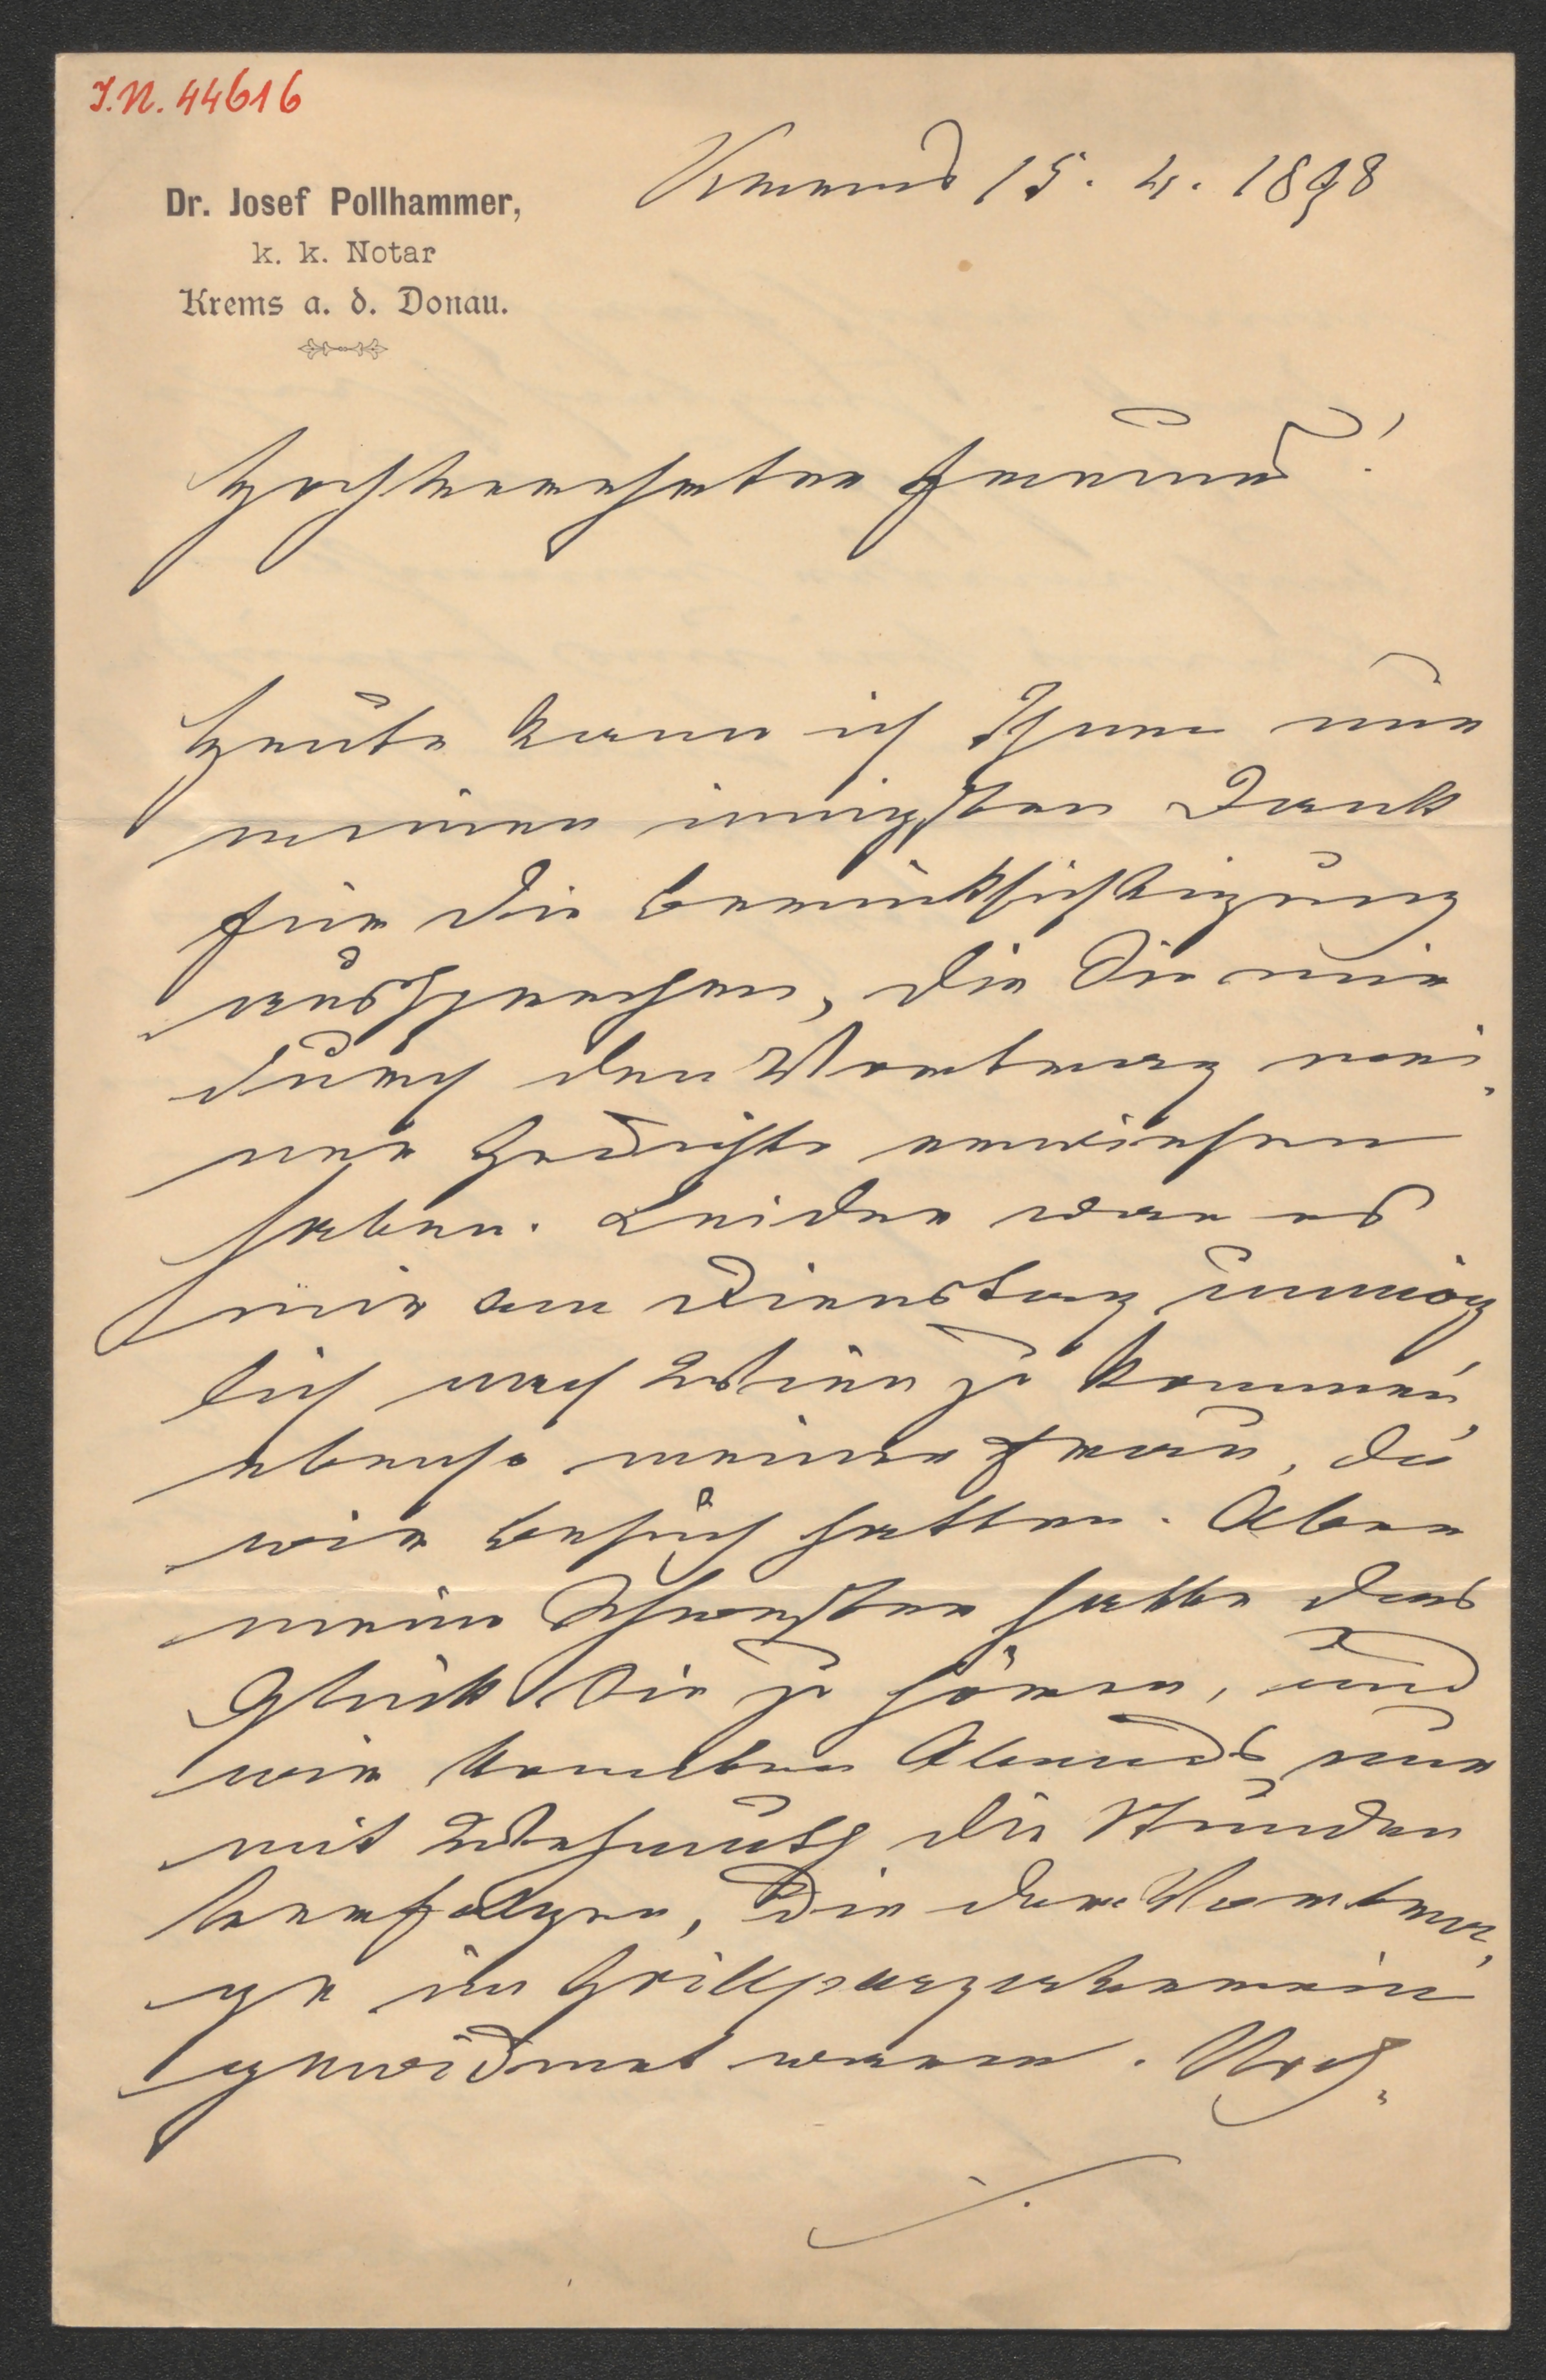 I.N. 44616
Dr. Josef Pollhammer,
k. k. Notar
Krems a. d. Donau.
Krems 15. 4. 1898
Hochverehrter Freund!
Heute kann ich Ihnen nur
meinen innigsten Dank
für die Berücksichtigung
aussprechen, die Sie mir
durch den Vortrag mei-
ner Gedichte erwiesen
haben. Leider war es
mir am Dienstag unmög
lich nach Wien zu kommen,
ebenso meiner Frau, da
wir Besuch hatten. Aber
meine Schwester hatte das
Glück Sie zu hören, und
wir konnten Abends nur
mit Wehmuth die Stunden
verfolgen, die dem Vortra-
ge im Grillparzerverein
gewidmet waren. Noch-